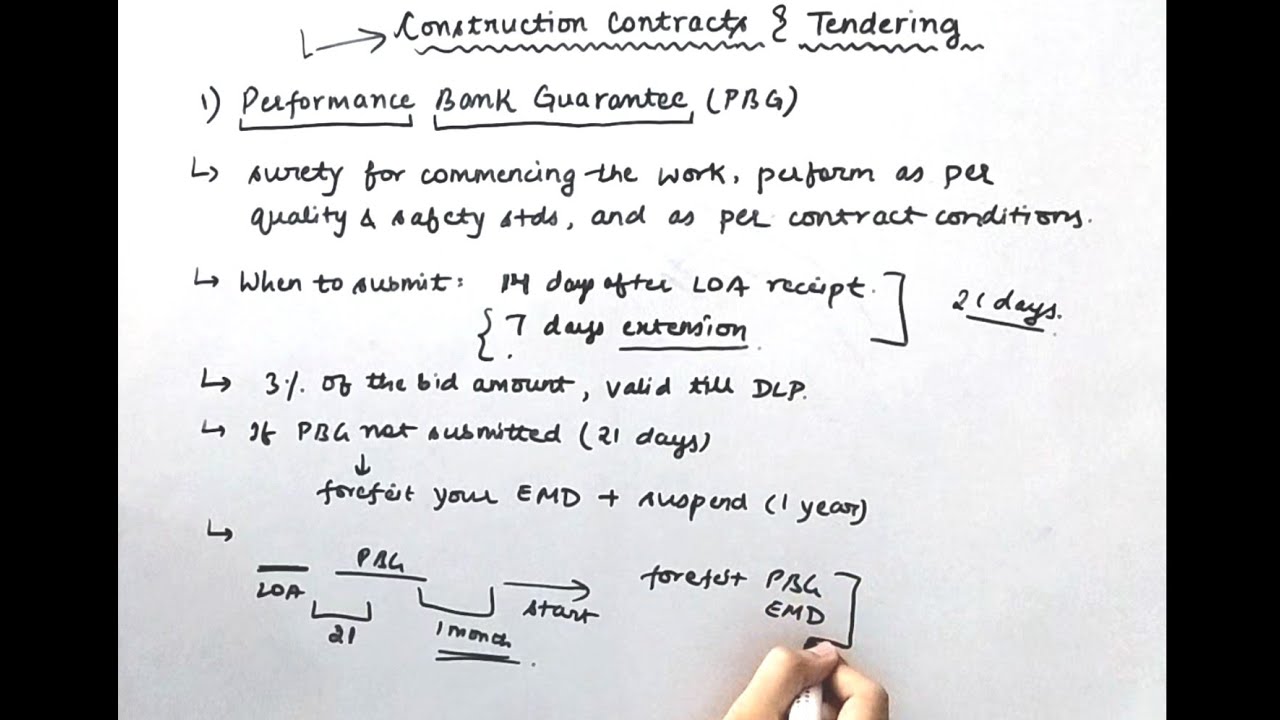 Construction Contracts & Tendering
1) Performance Bank Guarantee (PBG)
↳ surety for commencing the work, perform as per
quality & safety stds, and as per contract conditions.
↳ When to submit: 14 day after LOA receipt.
7 days extension
21 days.
↳ 3% of the bid amount, valid till DLP.
↳ If PBG not submitted (21 days)
↓
forefeit your EMD + suspend (1 year)
↳
PBG
LOA
21
1 month
start
forefeit PBG
EMD